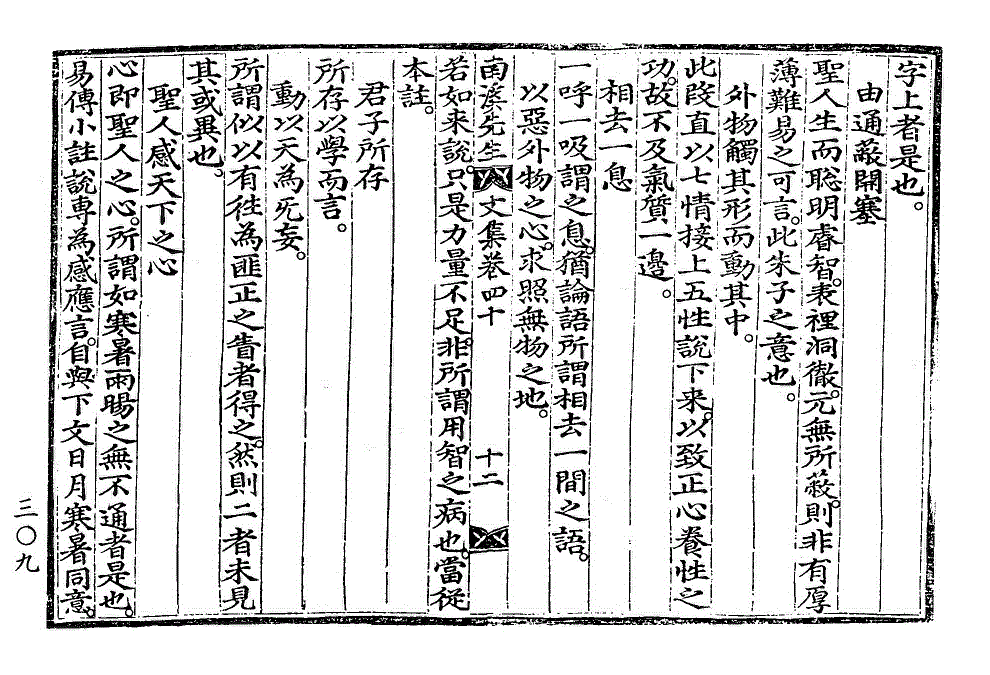 字上者是也。
由通蔽開塞
聖人生而聡明睿智。表裡洞徹。元無所蔽。則非有厚
薄難易之可言。此朱子之意也。
外物觸其形而動其中。
此段直以七情接上五性說下来。以致正心養性之
功。故不及氣質一邊。
相去一息
一呼一吸謂之息。猶論語所謂相去一間之語。
以惡外物之心。求照無物之地。
南溪先生文集卷四十
十二
若如来說。只是力量不足。非所謂用智之病也。當従
本註。
君子所存
所存以學而言。
動以天為无妄。
所謂似以有徃為匪正之眚者得之。然則二者未見
其或異也。
聖人感天下之心
心即聖人之心。所謂如寒暑雨暘之無不通者是也。
易傳小註說専為感應言。自與下文日月寒暑同意。
三〇九